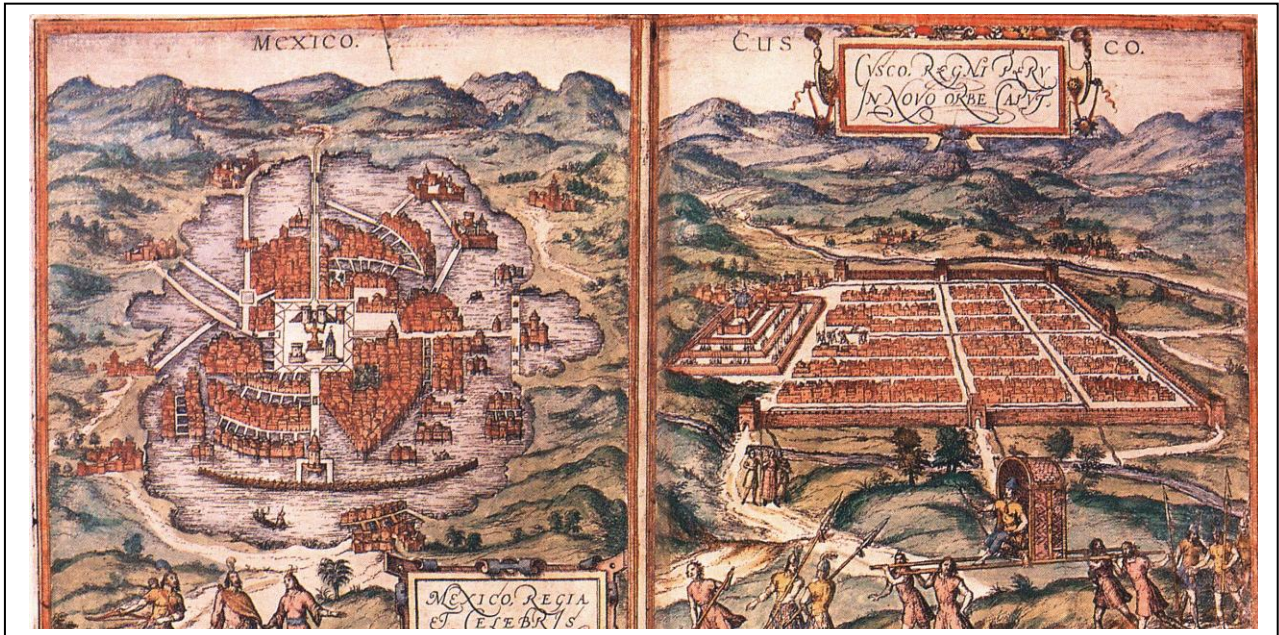 MEXICO.
CUSCO.
CVSCO, REGNI PERV
IN NOVO ORBE CAPVT.
MEXICO, REGIA
ET CELEBRIS